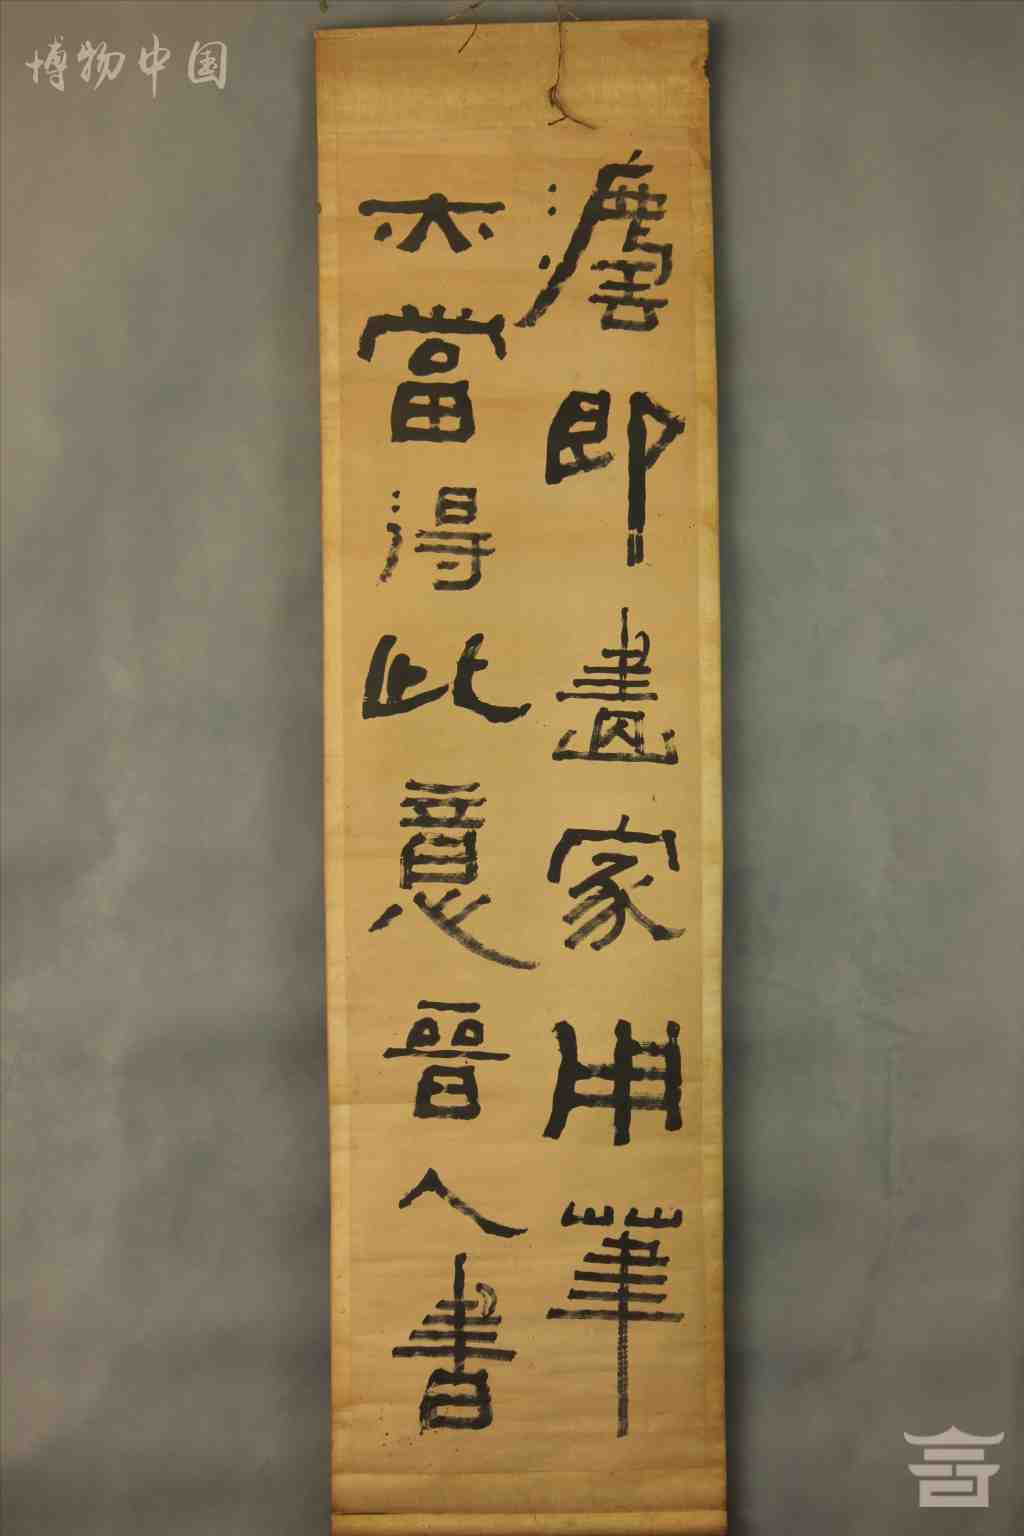 博物中国
即畫家用筆
亦當得此意晉人書